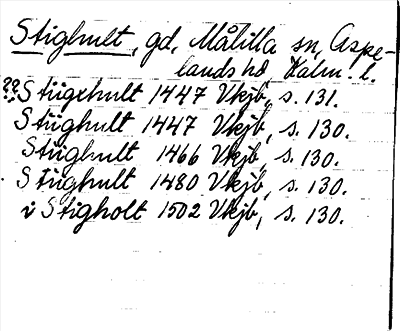 Stighult, gd, Målilla sn, Aspe-
lands hd, Kalm. l.
?? Stügxhult 1447 Vkjb, s. 131.
Stüghult 1447 Vkjb, s. 130.
Stüghult 1466 Vkjb, s. 130.
Stüghult 1480 Vkjb, s. 130.
i Stigholt 1502 Vkjb, s. 130.